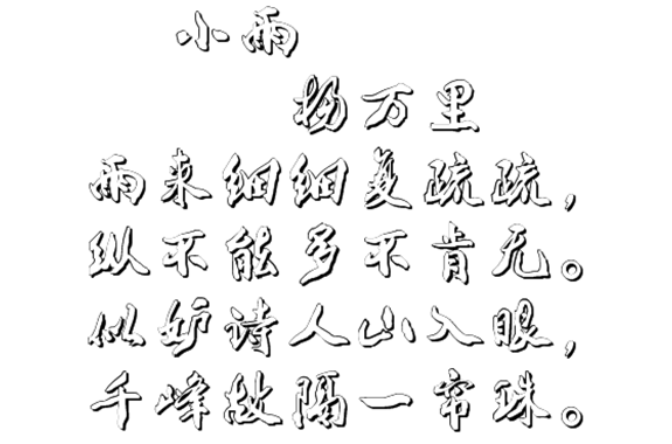 小雨
杨万里
雨来细细复疏疏，
纵不能多不肯无。
似妒诗人山入眼，
千峰故隔一帘珠。